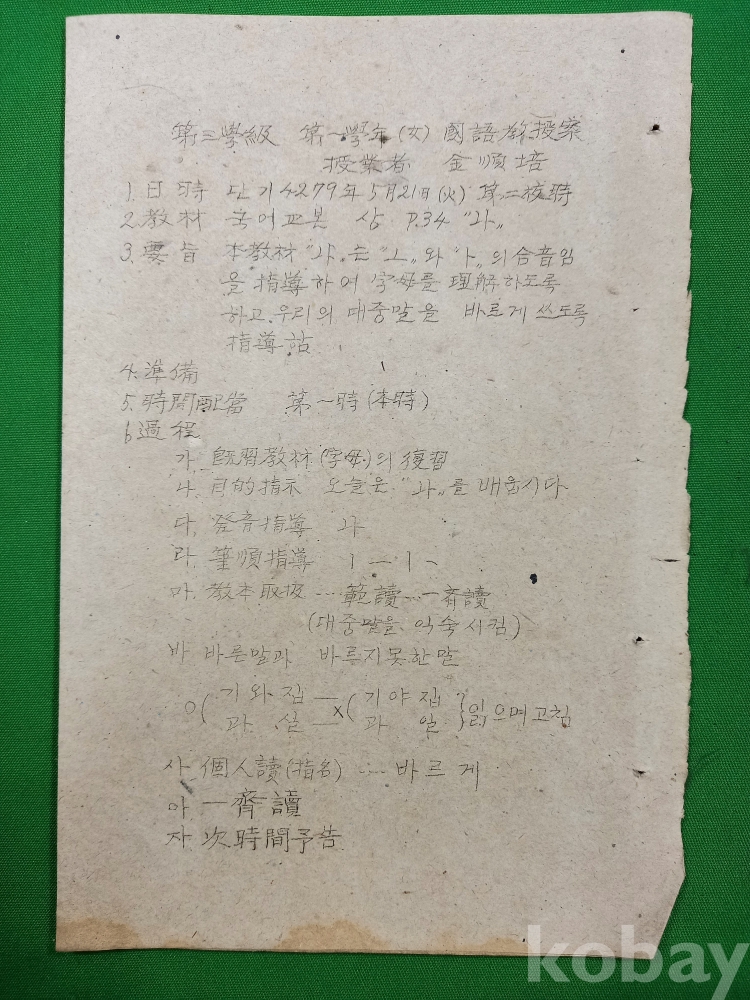 第三學級 第一學年(女) 國語敎授案
授業者 金順培
1. 日時 단기4279年 5月21日(火) 第二校時
2. 敎材 국어교본 상 P.34 "과"
3. 要旨 本敎材 "과"는 "ㅗ"와 "ㅏ"의 合音임
을 指導하여 字母를 理解하도록
하고 우리의 대중말을 바르게 쓰도록
指導함
4. 準備
5. 時間配當 第一時(本時)
6 過程
가. 旣習敎材(字母)의 復習
나. 目的指示 오늘은 "과"를 배웁시다.
다. 發音指導 과
라. 筆順指導 ㅣ ㅡ ㅣ ㅡ
마. 敎本取扱 … 範讀 … 一齊讀
(대중말을 익숙시킴)
바 바른말과 바르지못한말
○( 기와집 — ×( 기야집 } 읽으며고침
과 실 — 과 일
사. 個人讀(指名) … 바르게
아 一齊讀
자. 次時間予告
kobay